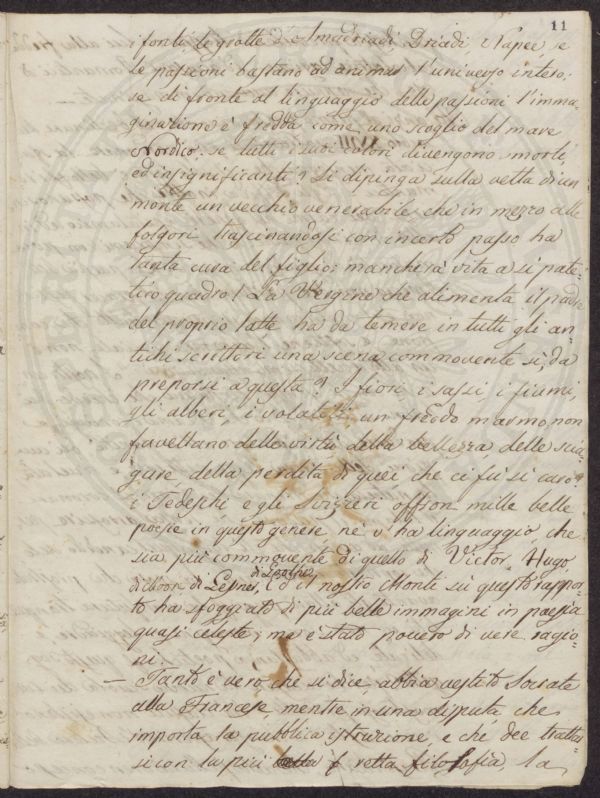 11
i fonti, le grotte di Amadriadi Driadi, Napee, se
le passioni bastano ad animar l'universo intero:
se di fronte al linguaggio delle passioni l'imma=
ginazione è fredda come uno scoglio del mare
Nordico. se tutti i suoi colori divengono smorti,
ed insignificanti? Si dipinga sulla vetta di un
monte un vecchio venerabile che in mezzo alle
folgori trascinandosi con incerto passo ha
tanta cura del figlio: mancherà vita a sì pate=
tico quadro! La Vergine che alimenta il padre
del proprio latte ha da temere in tutti gli an=
tichi scrittori una scena commovente sì, da
preporsi a questa? I fiori i sassi, i fiumi,
gli alberi, i volatili, un freddo marmo non
favellano delle virtù della bellezza delle scia=
gure, della perdita di quei che ci fu sì caro?
i Tedeschi e gli Svizzeri offron mille belle
poesie in questo genere, nè v'ha linguaggio, che
sia più commovente di quello di Victor Hugo,
di Moor, di Gesner, ed il nostro Monti su questo rappor=
to ha sfoggiato di più belle immagini in poesia
quasi celeste; ma è stato povero di vere ragio=
ni.
— Tanto è vero che si dice, abbia vestito Socrate
alla Francese mentre in una disputa che
importa la pubblica istruzione, e che dee tratta=
si con la più retta filosofia, la